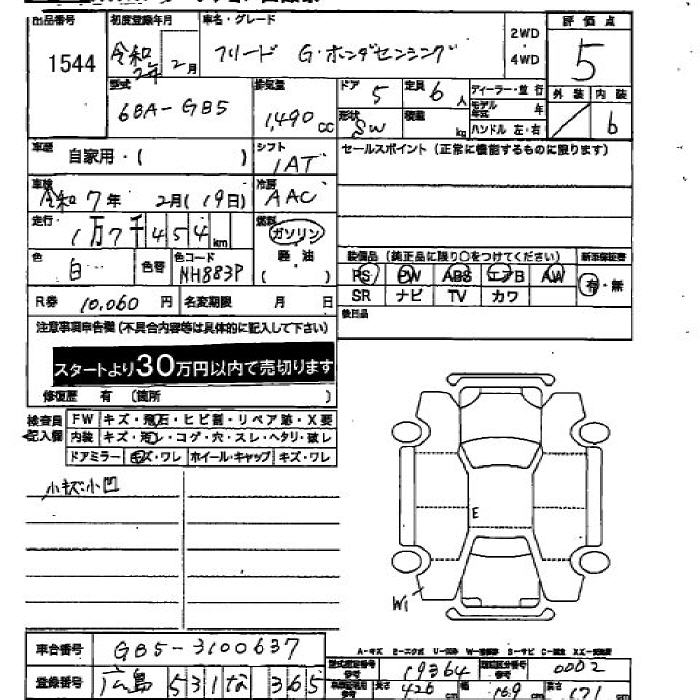 出品番号 初度登録年月 車名・グレード 評価点
1544 令和2年2月 フリード G・ホンダセンシング 2WD・4WD 5
型式 排気量 ドア 定員 ディーラー・並行 外装 内装
6BA-GB5 1,490cc 5 6人 モデル年式 年 6
形状 SW 積載 kg ハンドル 左・右
車歴 自家用・( ) シフト 1AT セールスポイント (正常に機能するものに限ります)
車検 令和7年 2月(19日) 冷房 AAC
走行 1万7千454km 燃料 ガソリン
色 白 色替 色コード NH883P ( 軽・油 )
装備品 (純正品に限り○をつけてください) 新車保証書
PS PW ABS エアB AW 有・無
SR ナビ TV カワ
R券 10,060円 名変期限 月 日
後日品
注意事項申告欄 (不具合内容等は具体的に記入して下さい)
スタートより30万円以内で売切ります
修復歴 有 (箇所 )
検査員記入欄 FW キズ・飛石・ヒビ割・リペア跡・X要
内装 キズ・汚レ・コゲ・穴・スレ・ヘタリ・破レ
ドアミラー キズ・ワレ ホイール・キャップ キズ・ワレ
小キズ・小凹
E
W1
車台番号 GB5-3100637
A-キズ E-エクボ
登録番号 広島 531 な 365
型式指定番号 19364 類別区分番号 0002
長さ 426 cm 幅 169 cm 高さ 171 cm